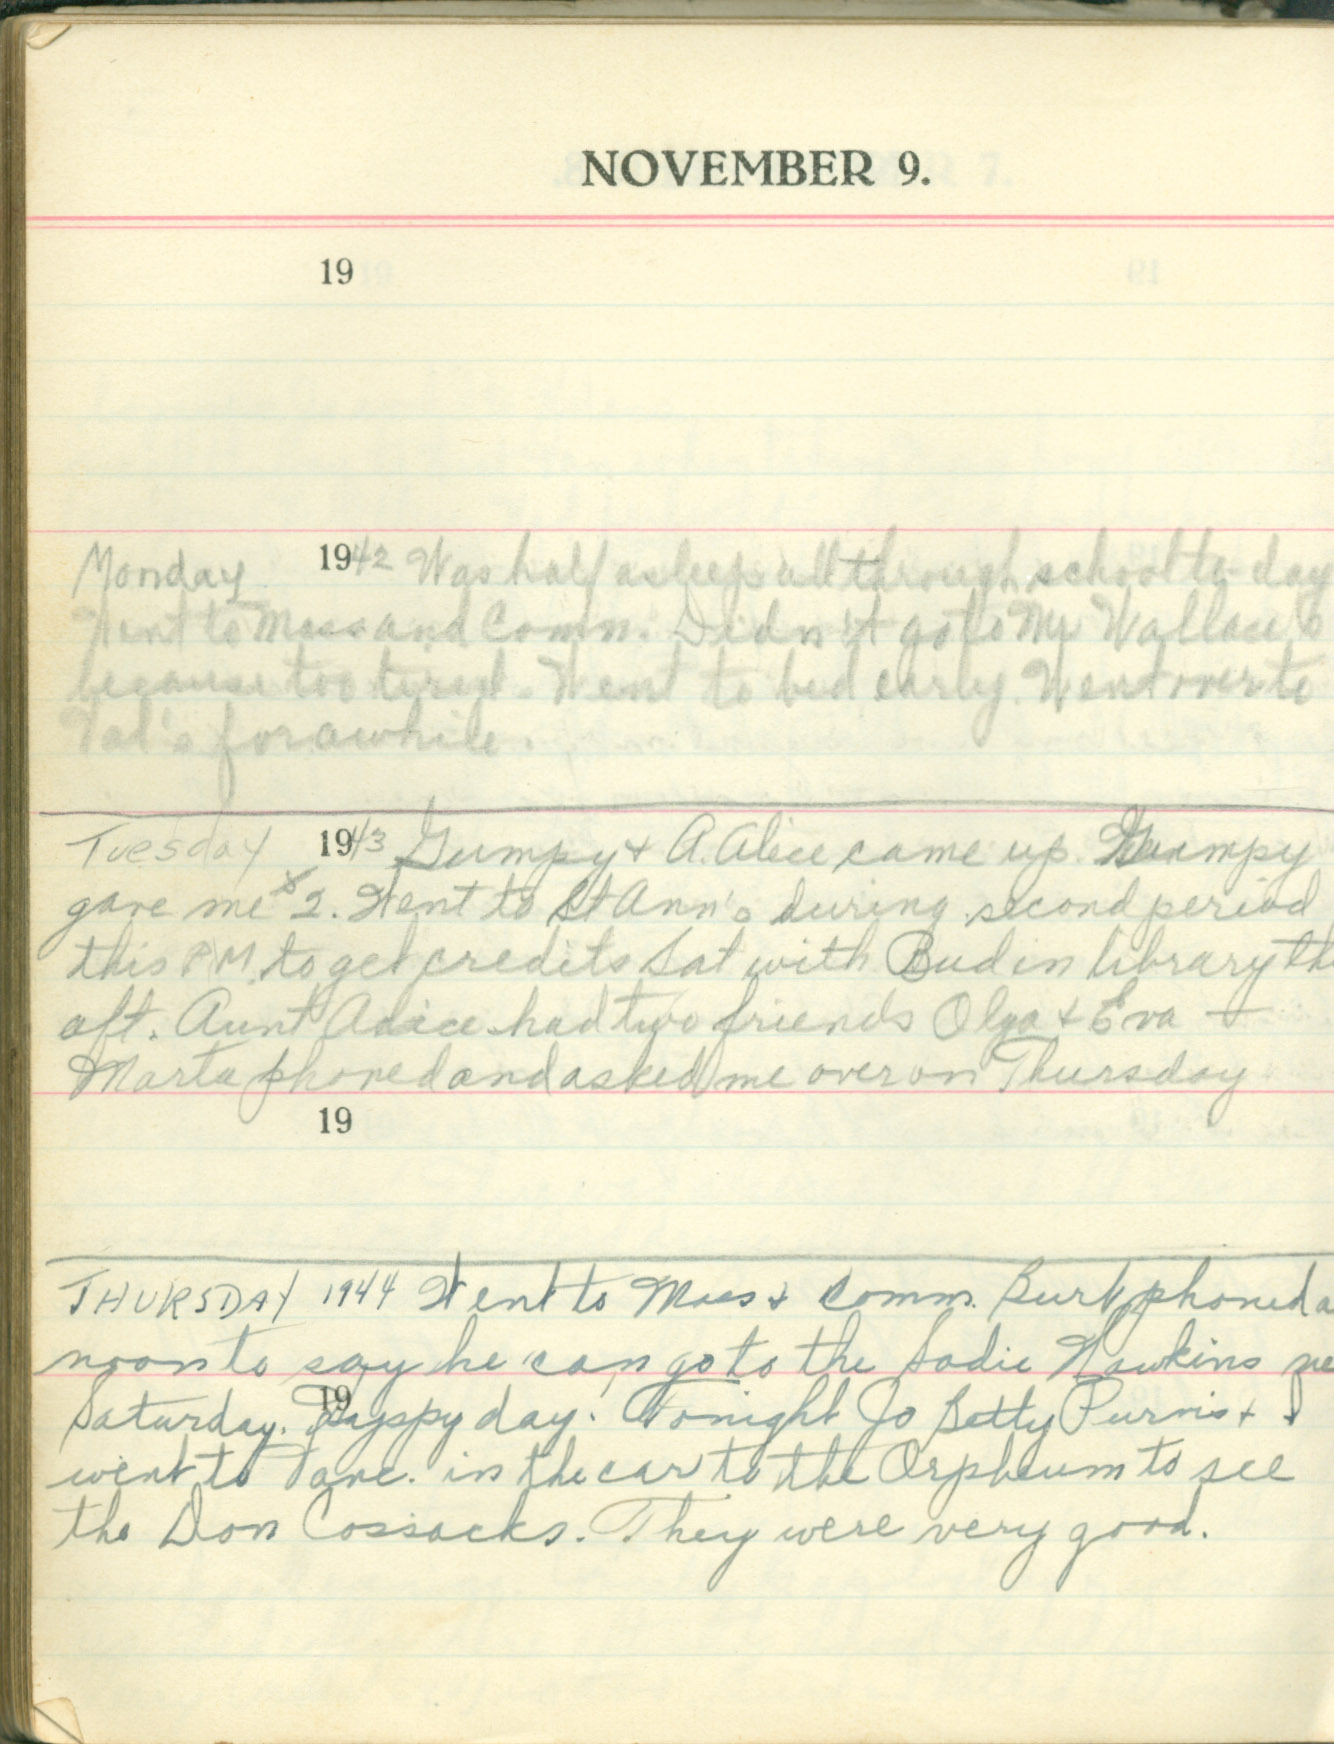 NOVEMBER 9.
19
Monday 1942 Was half asleep all through school to-day
Went to Mass and Comm. Didn't go to Mr Wallace's
because too tired. Went to bed early. Went over to
Val's for awhile.
Tuesday 1943 Gumpy + A. Alice came up. Gumpy
gave me $2. Went to St Ann's during second period
this P.M. to get credits Sat with Bud in library
aft. Aunt Alice had two friends Olga + Eva
Marta phoned and asked me over on Thursday
19
THURSDAY 1944 Went to Mass + Comm. Burk phoned
noon to say he can go to the Sadie Hawkins
19
Saturday. Happy day! Tonight Jo Betty Purvis + I
went to Vanc. in the car to the Orpheum to see
the Don Cossacks. They were very good.